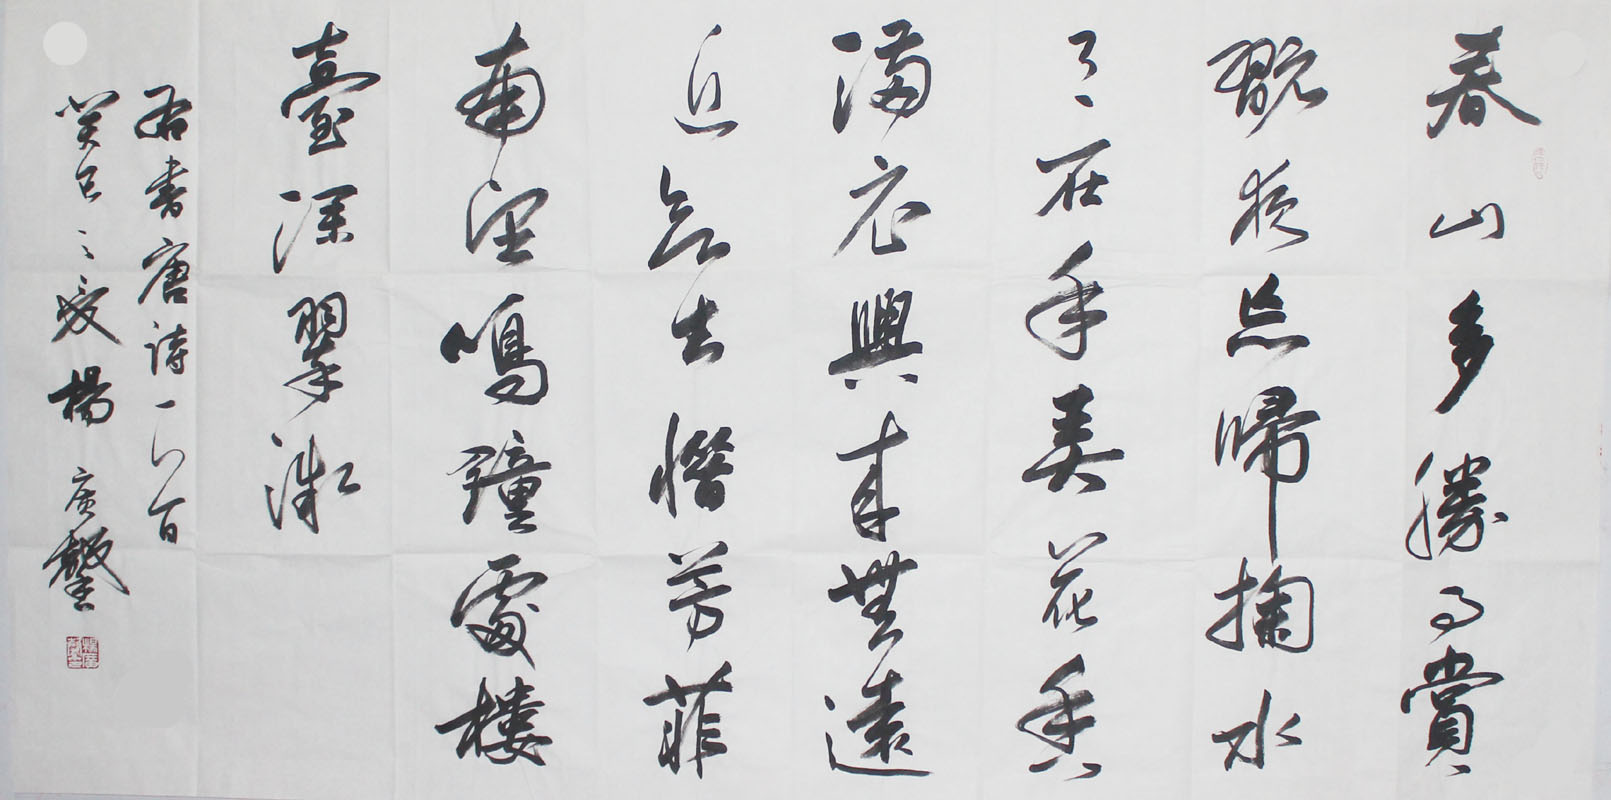 春山多勝事賞
翫夜忘歸掬水
月在手弄花香
滿衣興來無遠
近欲去惜芳菲
南望鳴鐘處樓
臺深翠微
右書唐詩一首
癸巳之夏楊廣馨